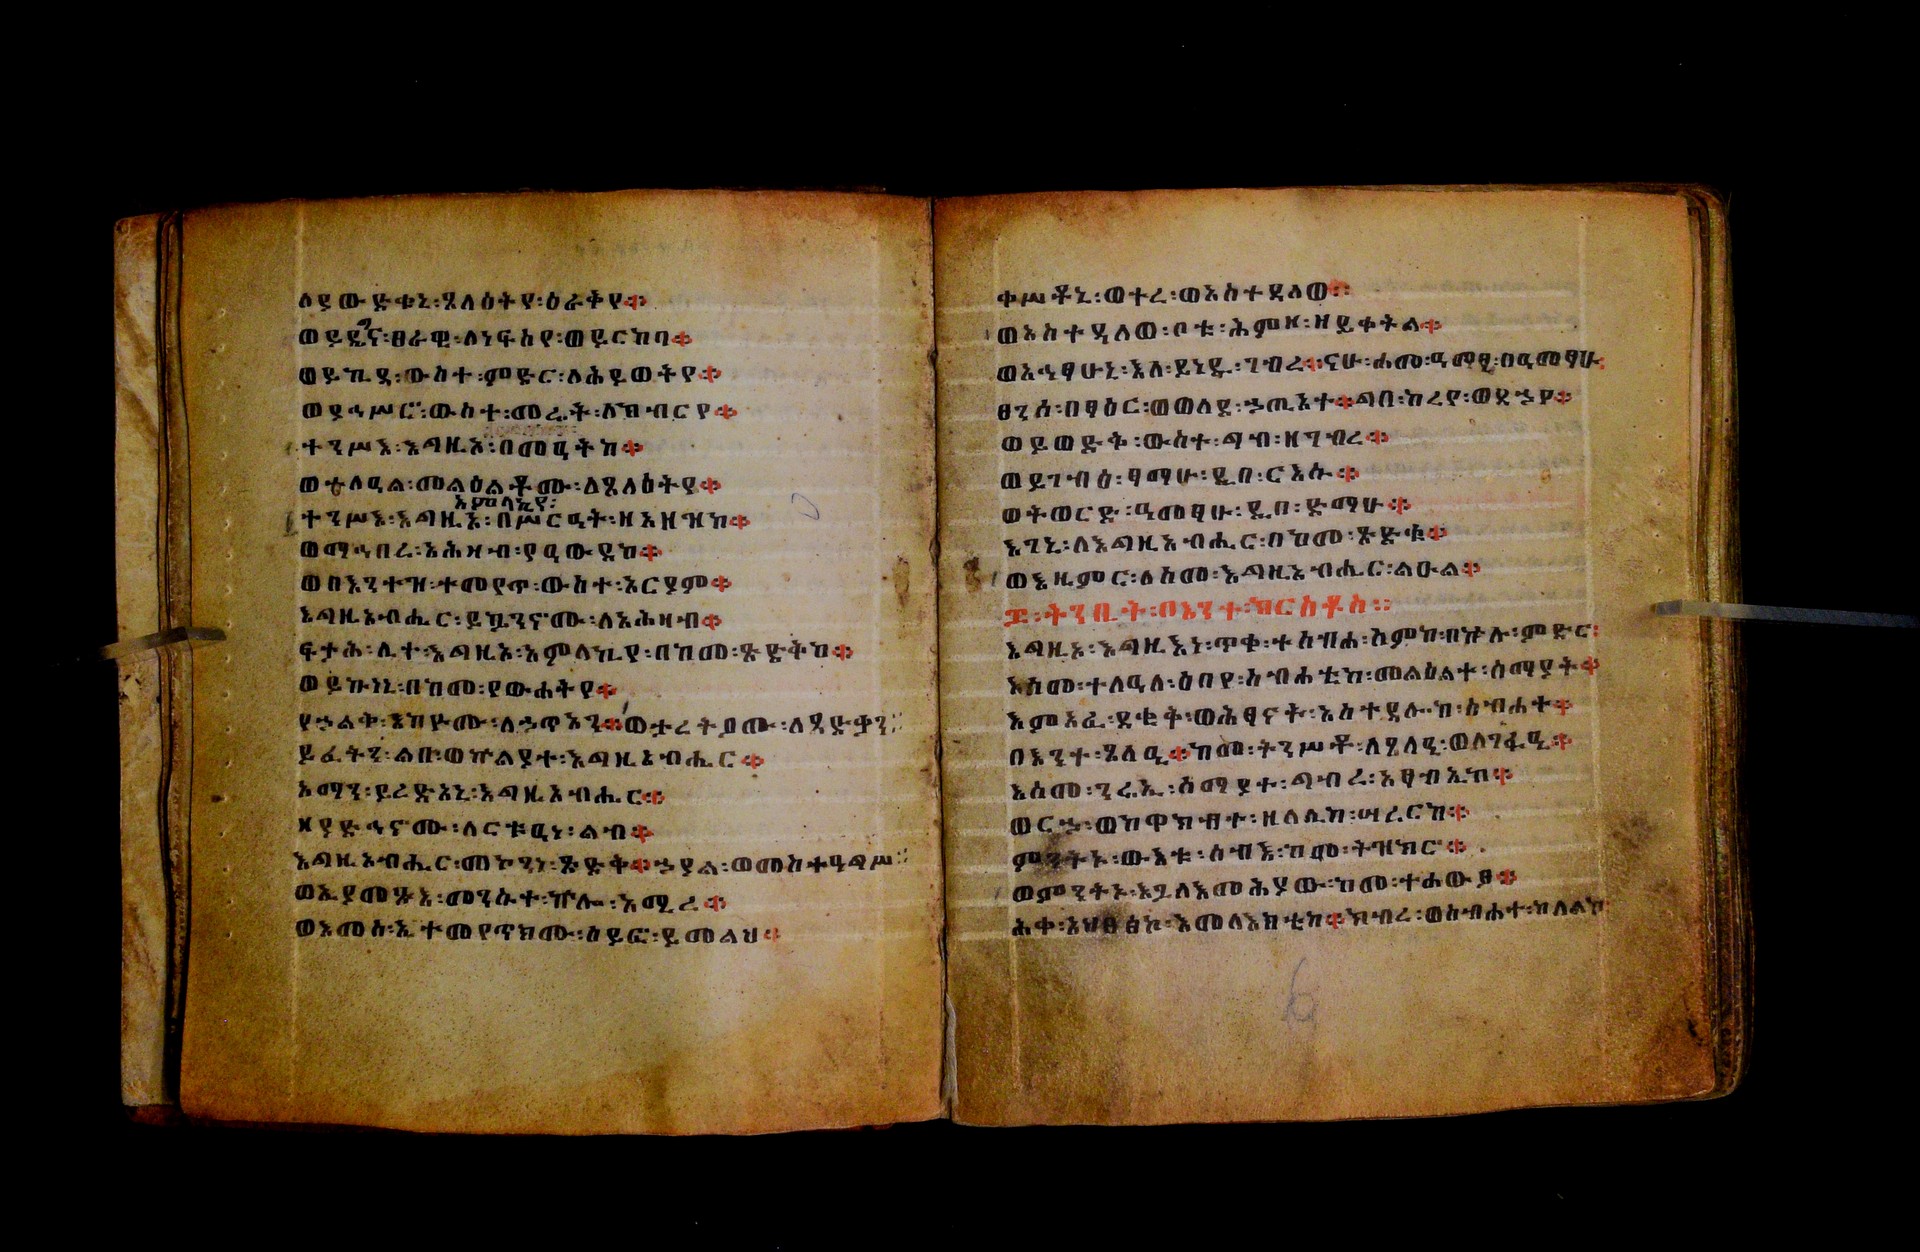 ለያውድቁኒ፡ጸላዕትየ፡ዕራቅየ።
ወይዴግና፡ፀራዊ፡ለነፍስየ፡ወይርከባ።
ወይኪዳ፡ውስተ፡ምድር፡ለሕይወትየ።
ወያኅሥሮ፡ውስተ፡መሬት፡ለክብርየ።
ተንሥእ፡እግዚኦ፡በመዓትከ።
ወተለዓል፡መልዕልቶሙ፡ለጸላዕትየ።
አምላኪየ፡
ተንሥእ፡እግዚኦ፡በሥርዓት፡ዘአዘዝከ።
ወማኅበረ፡አሕዛብ፡የዓውደከ።
ወበእንተዝ፡ተመየጥ፡ውስተ፡አርያም።
እግዚአብሔር፡ይኴንኖሙ፡ለአሕዛብ።
ፍታሕ፡ሊተ፡እግዚኦ፡አምላኪየ፡በከመ፡ጽድቅከ።
ወይኩነኒ፡በከመ፡የውሐትየ።
የኃልቅ፡እከዮሙ፡ለኃጥአን።ወታረትዖሙ፡ለጻድቃን።
ይፈትን፡ልበ፡ወኵልያተ፡እግዚአብሔር።
አማን፡ይረድአኒ፡እግዚአብሔር።
ዘያድኅኖሙ፡ለርቱዓነ፡ልብ።
እግዚአብሔር፡መኮንነ፡ጽድቅ።ኃያል፡ወመስተዓግሥ።
ወኢያመፅእ፡መንሱተ፡ኵሎ፡አሚረ።
ወእመሰ፡ኢተመየጥክሙ፡ሰይፎ፡ይመልህ።
ቀሥቶኒ፡ወተረ፡ወአስተዳለወ።
ወአስተዳለወ፡ቦቱ፡ሕምዘ፡ዘይቀትል።
ወአኅፃሁኒ፡እለ፡ይነዱ፡ገብረ።ናሁ፡ሐመ፡ዓማፂ፡በዓመፃሁ
ፀንሰ፡በፃዕር፡ወወለደ፡ኃጢአተ።ግበ፡ከረየ፡ወደኃየ።
ወይወድቅ፡ውስተ፡ግብ፡ዘገብረ።
ወይገብዕ፡ፃማሁ፡ዲበ፡ርእሱ።
ወትወርድ፡ዓመፃሁ፡ዲበ፡ድማሁ።
እገኒ፡ለእግዚአብሔር፡በከመ፡ጽድቁ።
ወእዜምር፡ለስመ፡እግዚአብሔር፡ልዑል።
፰፡ትንቢት፡በእንተ፡ክርስቶስ።
እግዚኦ፡እግዚእነ፡ጥቀ፡ተሰብሐ፡ስምከ፡በኵሉ፡ምድር፡
እስመ፡ተለዓለ፡ዕበየ፡ስብሐቲከ፡መልዕልተ፡ሰማያት።
እምአፈ፡ደቂቅ፡ወሕፃናት፡አስተዳሉከ፡ስብሐተ።
በእንተ፡ጸላዒ።ከመ፡ትንሥቶ፡ለጸላዒ፡ወለገፋዒ።
እስመ፡ንሬኢ፡ሰማያተ፡ግብረ፡አፃብኢከ።
ወርኃ፡ወከዋክብተ፡ዘለሊከ፡ሣረርከ።
ምንትኑ፡ውእቱ፡ሰብእ፡ከመ፡ትዝክሮ።
ወምንትኑ፡እጓለእመሕያው፡ከመ፡ተሐውፆ።
ሕቀ፡አህፀፅኮ፡እመላእክቲከ።ክብረ፡ወስብሐተ፡ከለልኮ